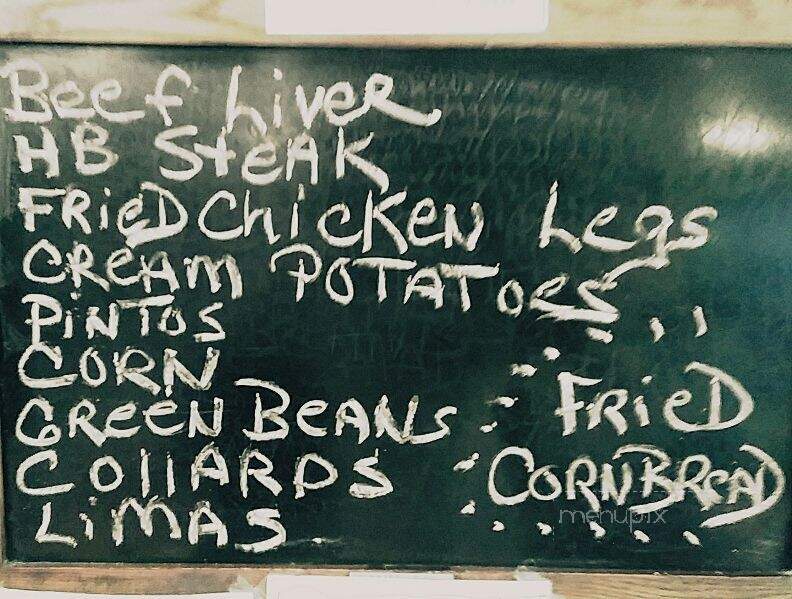 Beef Liver
HB STEAK
FRIED CHICKEN Legs
CREAM POTATOES
PINTOS
CORN
GREEN BEANS
COLLARDS
LIMAS
FRIED
CORNBREAD
menupix